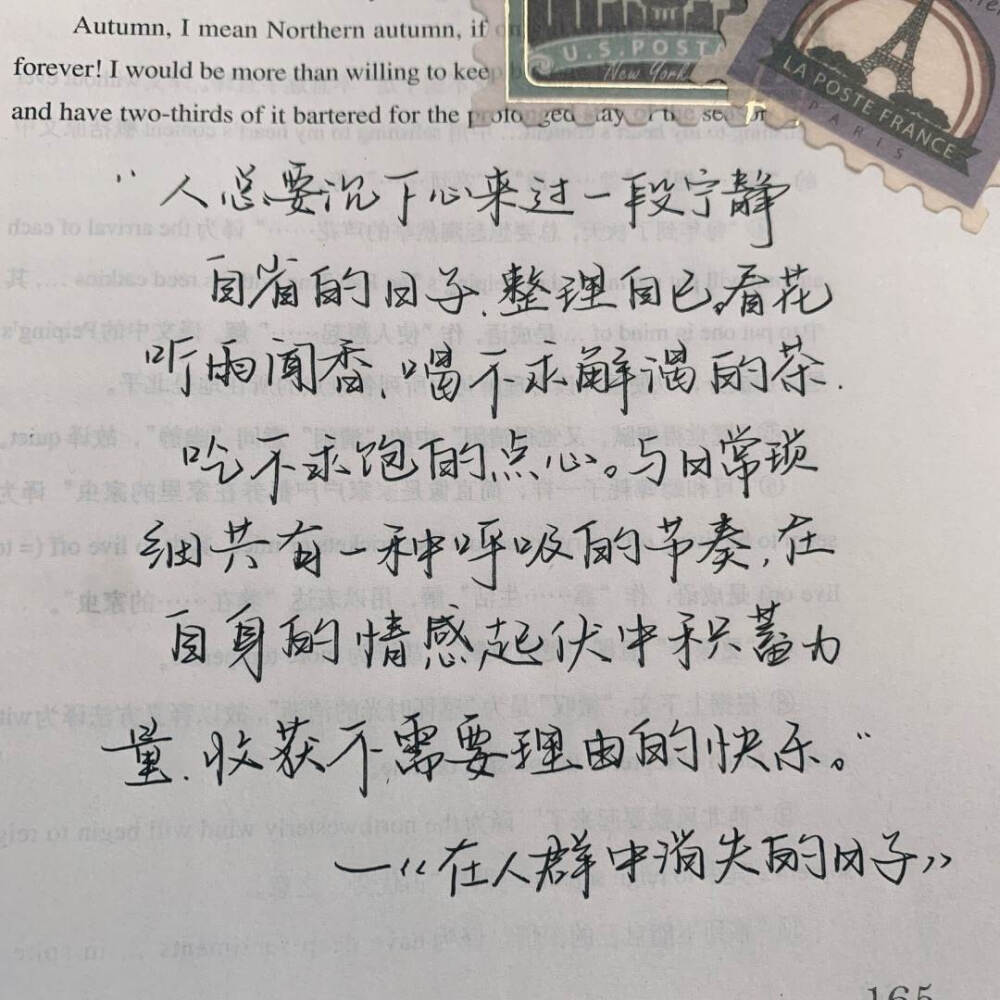 Autumn, I mean Northern autumn, if
forever! I would be more than willing to keep
and have two-thirds of it bartered for the prolonged stay of the season
U.S. POSTA
New York
LA POSTE FRANCE
PARIS
“人总要沉下心来过一段宁静
自省的日子,整理自己。看花
听雨闻香,喝不求解渴的茶.
吃不求饱的点心。与日常琐
细共有一种呼吸的节奏,在
自身的情感起伏中积蓄力
量.收获不需要理由的快乐。”
—《在人群中消失的日子》
165